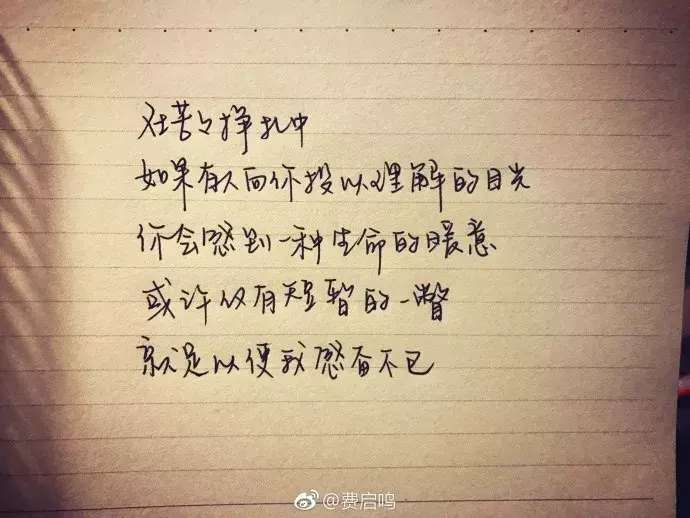 在苦々挣扎中
如果有人向你投以理解的目光
你会感到一种生命的暖意
或许仅有短暂的一瞥
就足以使我感奋不已
@费启鸣